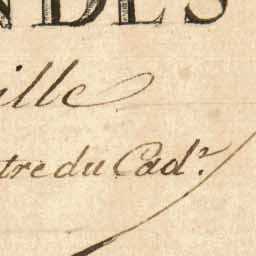 NDES
ille
tre du Cad.r